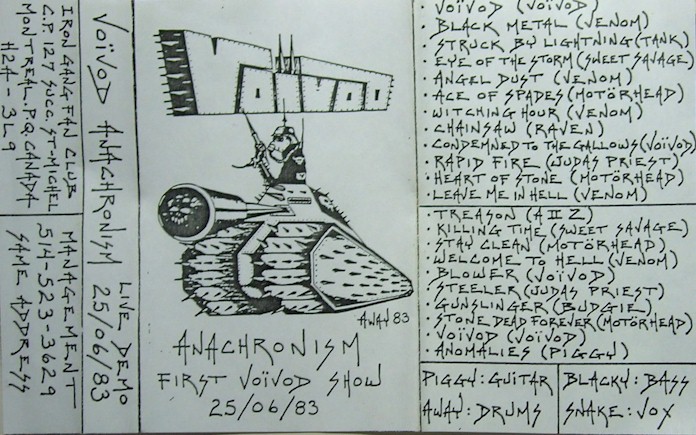 IRON GANG FAN CLUB
C.P. 127 SUCC. ST-MICHEL
MONTREAL. P.Q. CANADA
H2A - 3L9
MANAGEMENT
514-523-3629
SAME ADDRESS
VOÏVOD ANACHRONISM LIVE DEMO 25/06/83
AWAY 83
ANACHRONISM
FIRST VOÏVOD SHOW
25/06/83
· VOÏVOD (VOÏVOD)
· BLACK METAL (VENOM)
· STRUCK BY LIGHTNING (TANK)
· EYE OF THE STORM (SWEET SAVAGE)
· ANGEL DUST (VENOM)
· ACE OF SPADES (MOTÖRHEAD)
· WITCHING HOUR (VENOM)
· CHAINSAW (RAVEN)
· CONDEMNED TO THE GALLOWS (VOÏVOD)
· RAPID FIRE (JUDAS PRIEST)
· HEART OF STONE (MOTÖRHEAD)
· LEAVE ME IN HELL (VENOM)
· TREASON (A II Z)
· KILLING TIME (SWEET SAVAGE)
· STAY CLEAN (MOTÖRHEAD)
· WELCOME TO HELL (VENOM)
· BLOWER (VOÏVOD)
· STEELER (JUDAS PRIEST)
· GUNSLINGER (BUDGIE)
· STONE DEAD FOREVER (MOTÖRHEAD)
· VOÏVOD (VOÏVOD)
· ANOMALIES (PIGGY)
PIGGY: GUITAR
AWAY: DRUMS
BLACKY: BASS
SNAKE: VOX